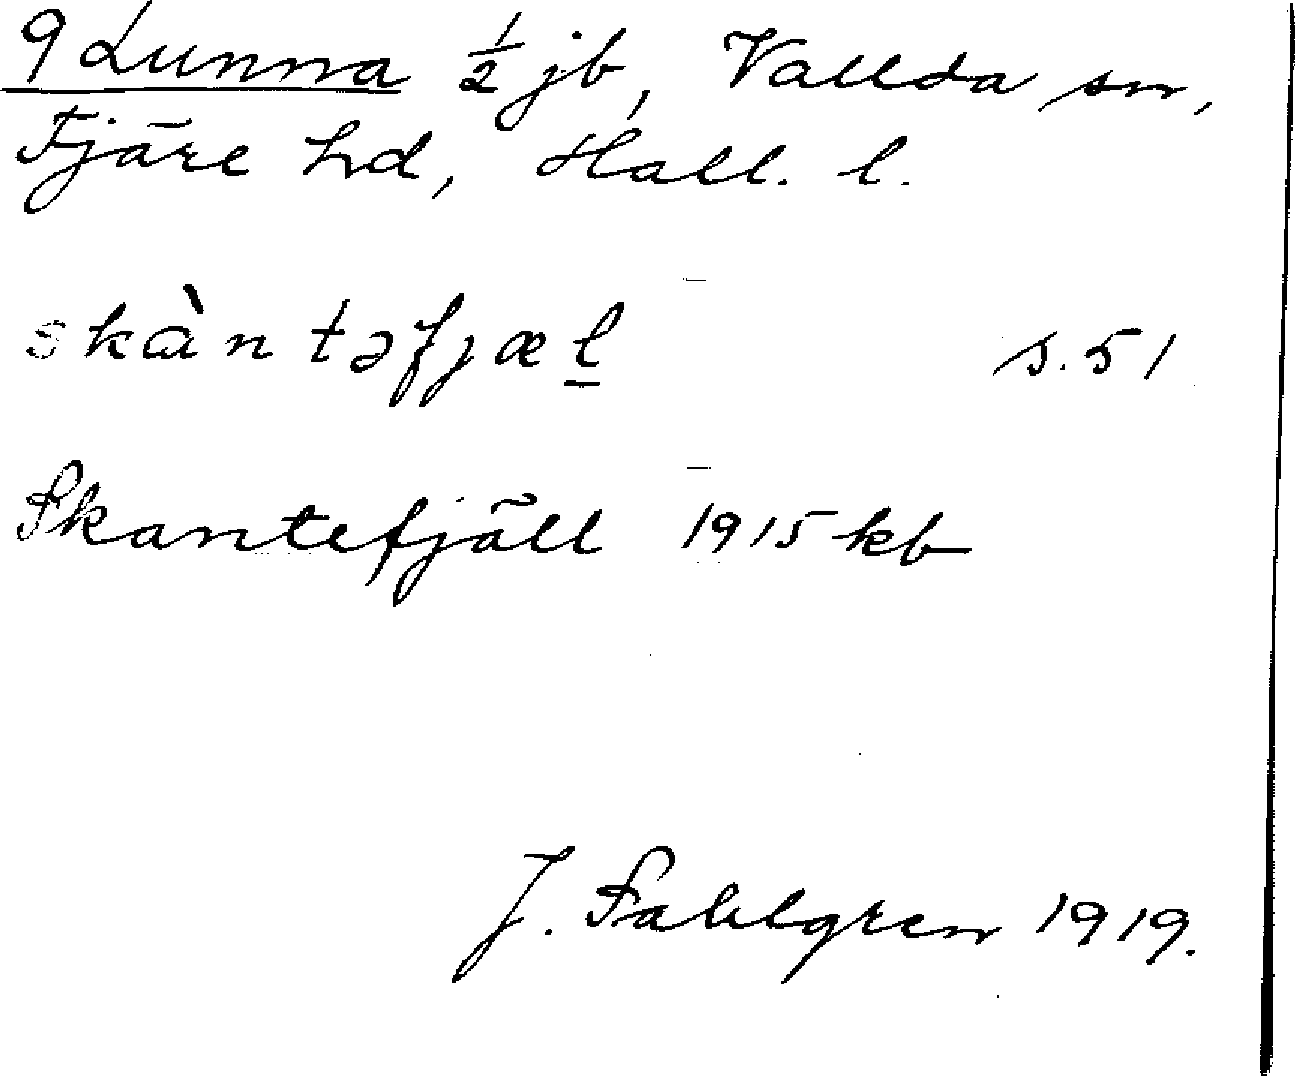 9 Lunna ½ jb, Vallda sn,
Fjäre hd, Hall. l.
skàntəfjæl̲ s. 51
Skantefjäll 1915 kb
J. Fahlgren 1919.